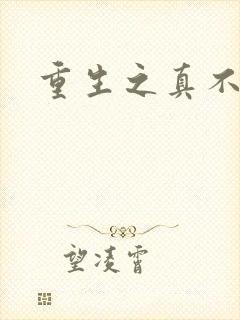 重生之真不
望凌霄